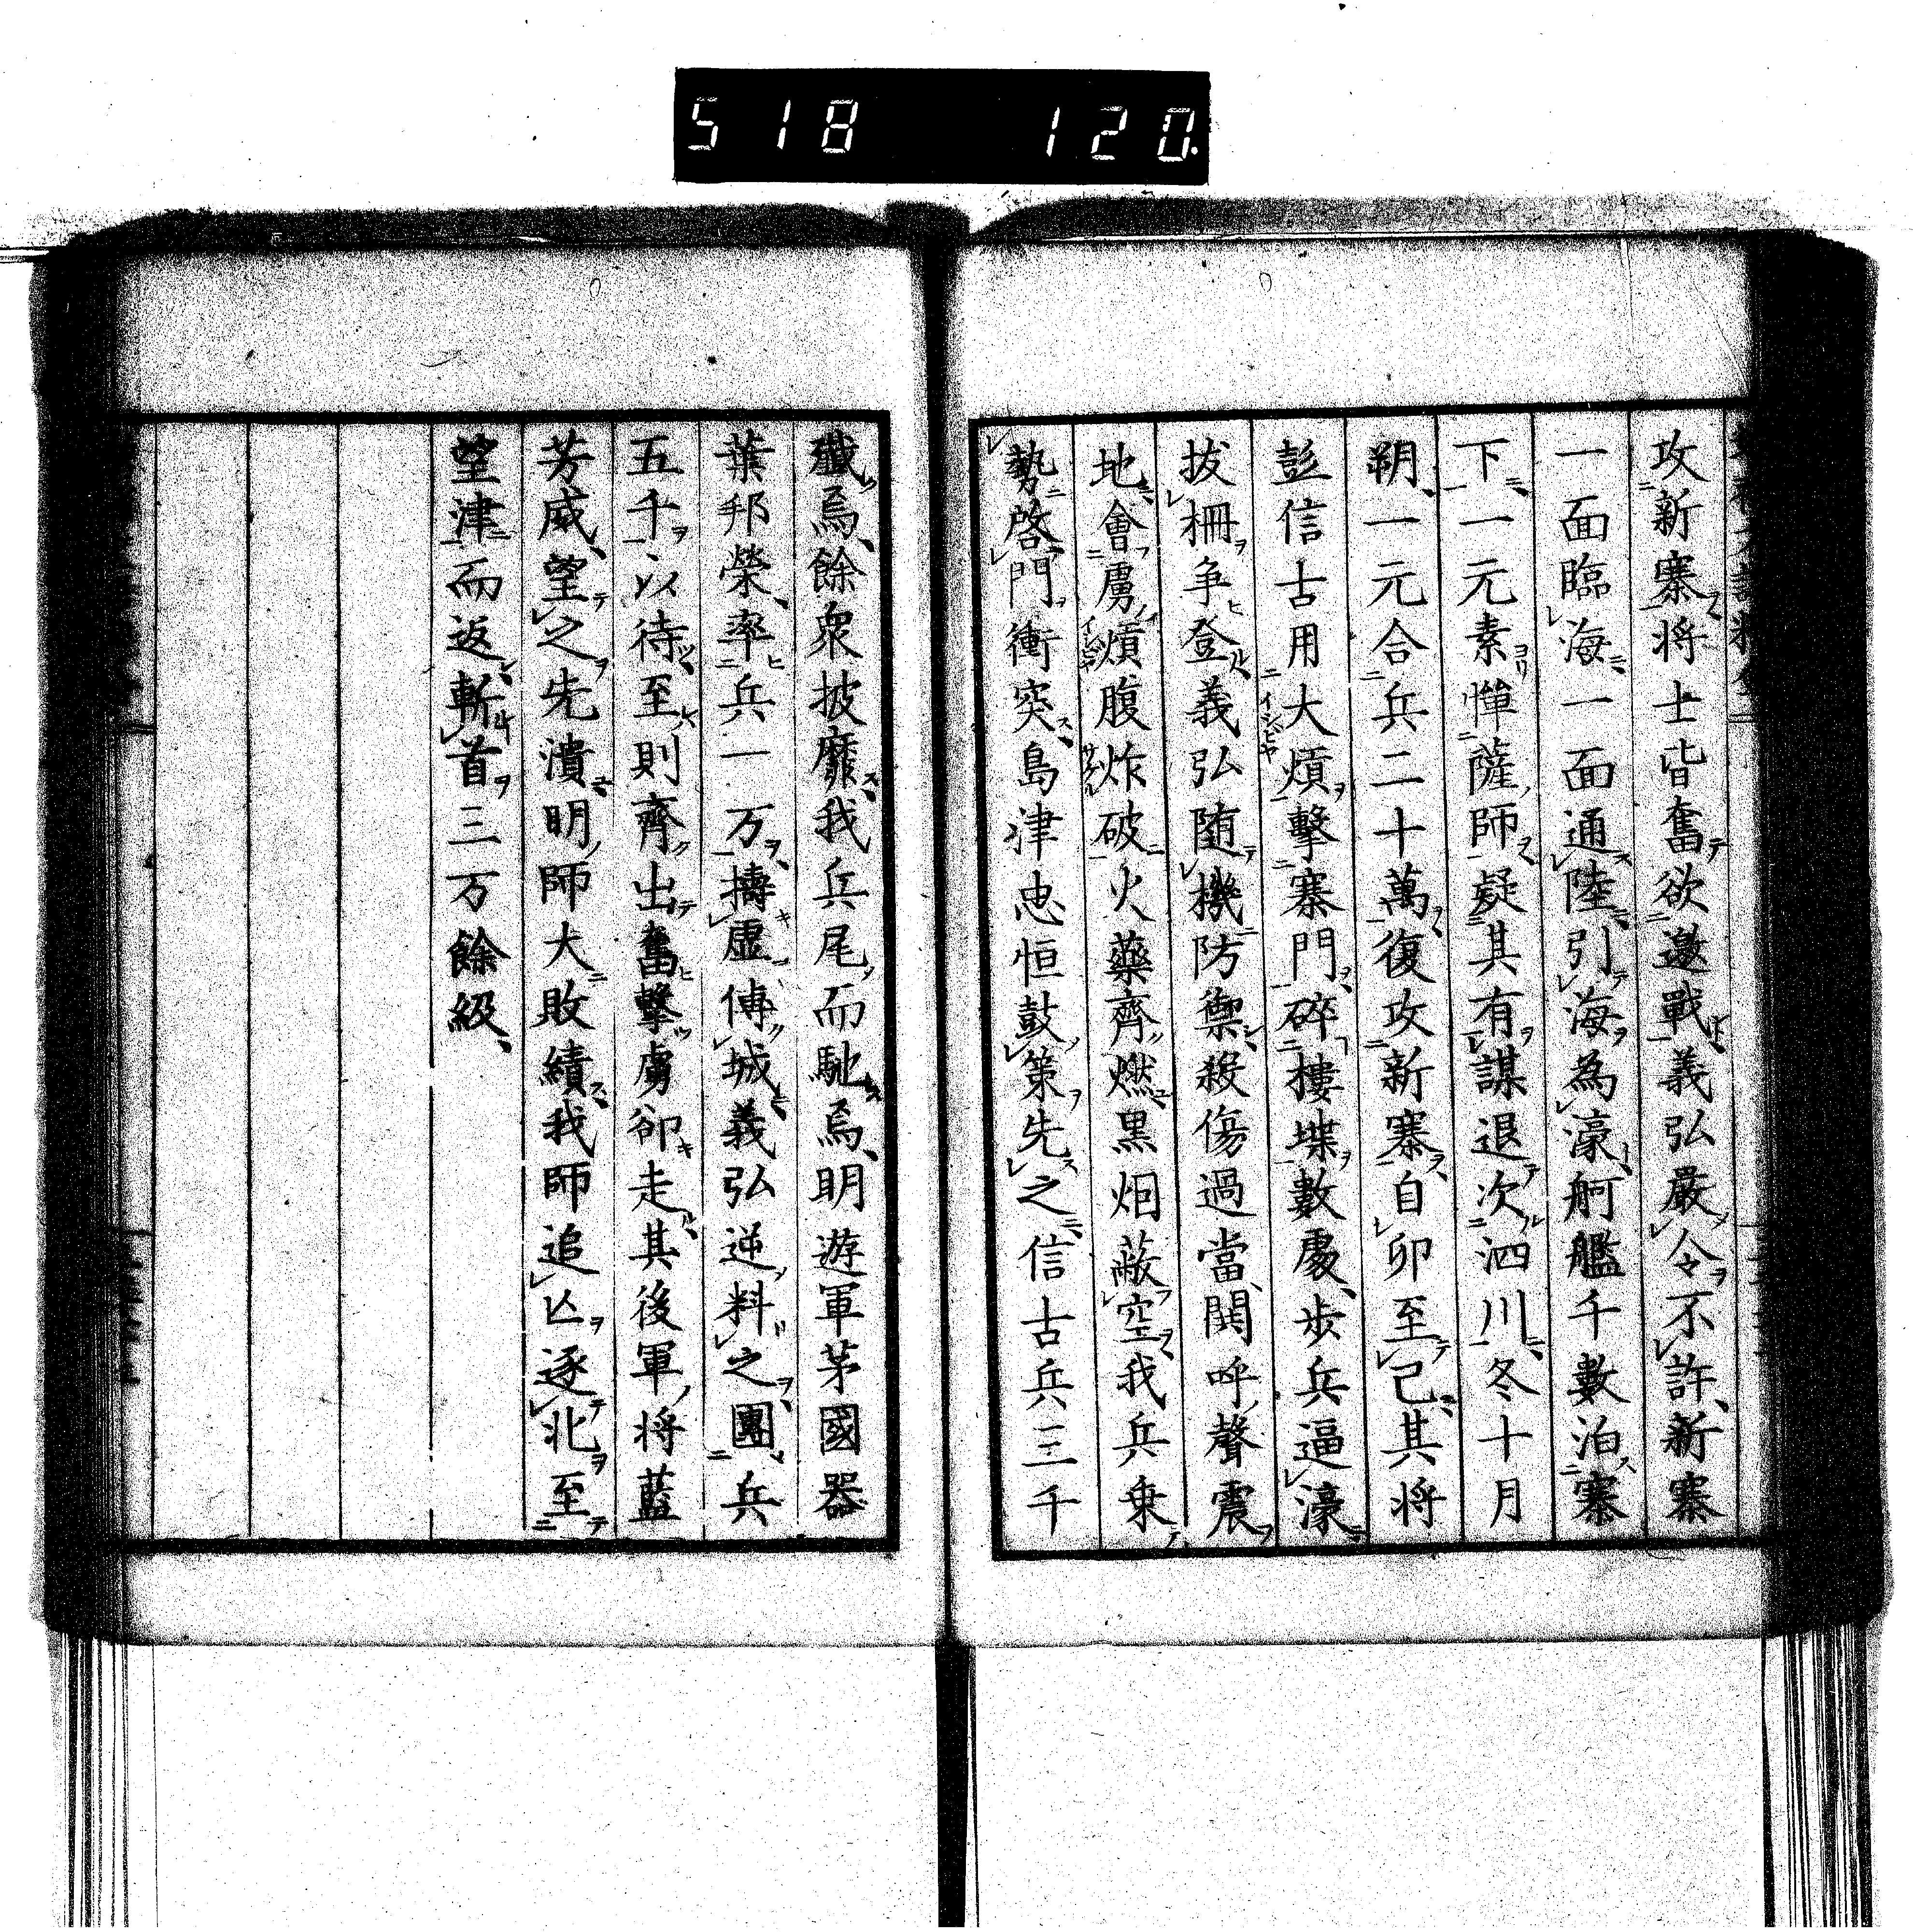 518 120
攻新寨将士皆奮欲邀戰義弘嚴令不許新寨
一面臨海一面通陸引海為濠舸艦千數泊寨
下一元素憚薩師疑其有謀退次泗川冬十月
朔一元合兵二十萬復攻新寨自卯至已其将
彭信古用大熕擊寨門碎樓堞數處步兵逼濠
拔柵争登義弘随機防禦殺傷過當鬨呼聲震
地會虜熕腹炸破火藥齊燃黒烟蔽空我兵乗
勢啓門衝突島津忠恒鼓策先之信古兵三千
殲焉餘衆披靡我兵尾而馳焉明遊軍茅國器
葉邦榮率兵一万擣虚傅城義弘逆料之團兵
五千以待至則齊出奮撃虜卻走其後軍将藍
芳威望之先潰明師大敗績我師追亾逐北至
望津而返斬首三万餘級